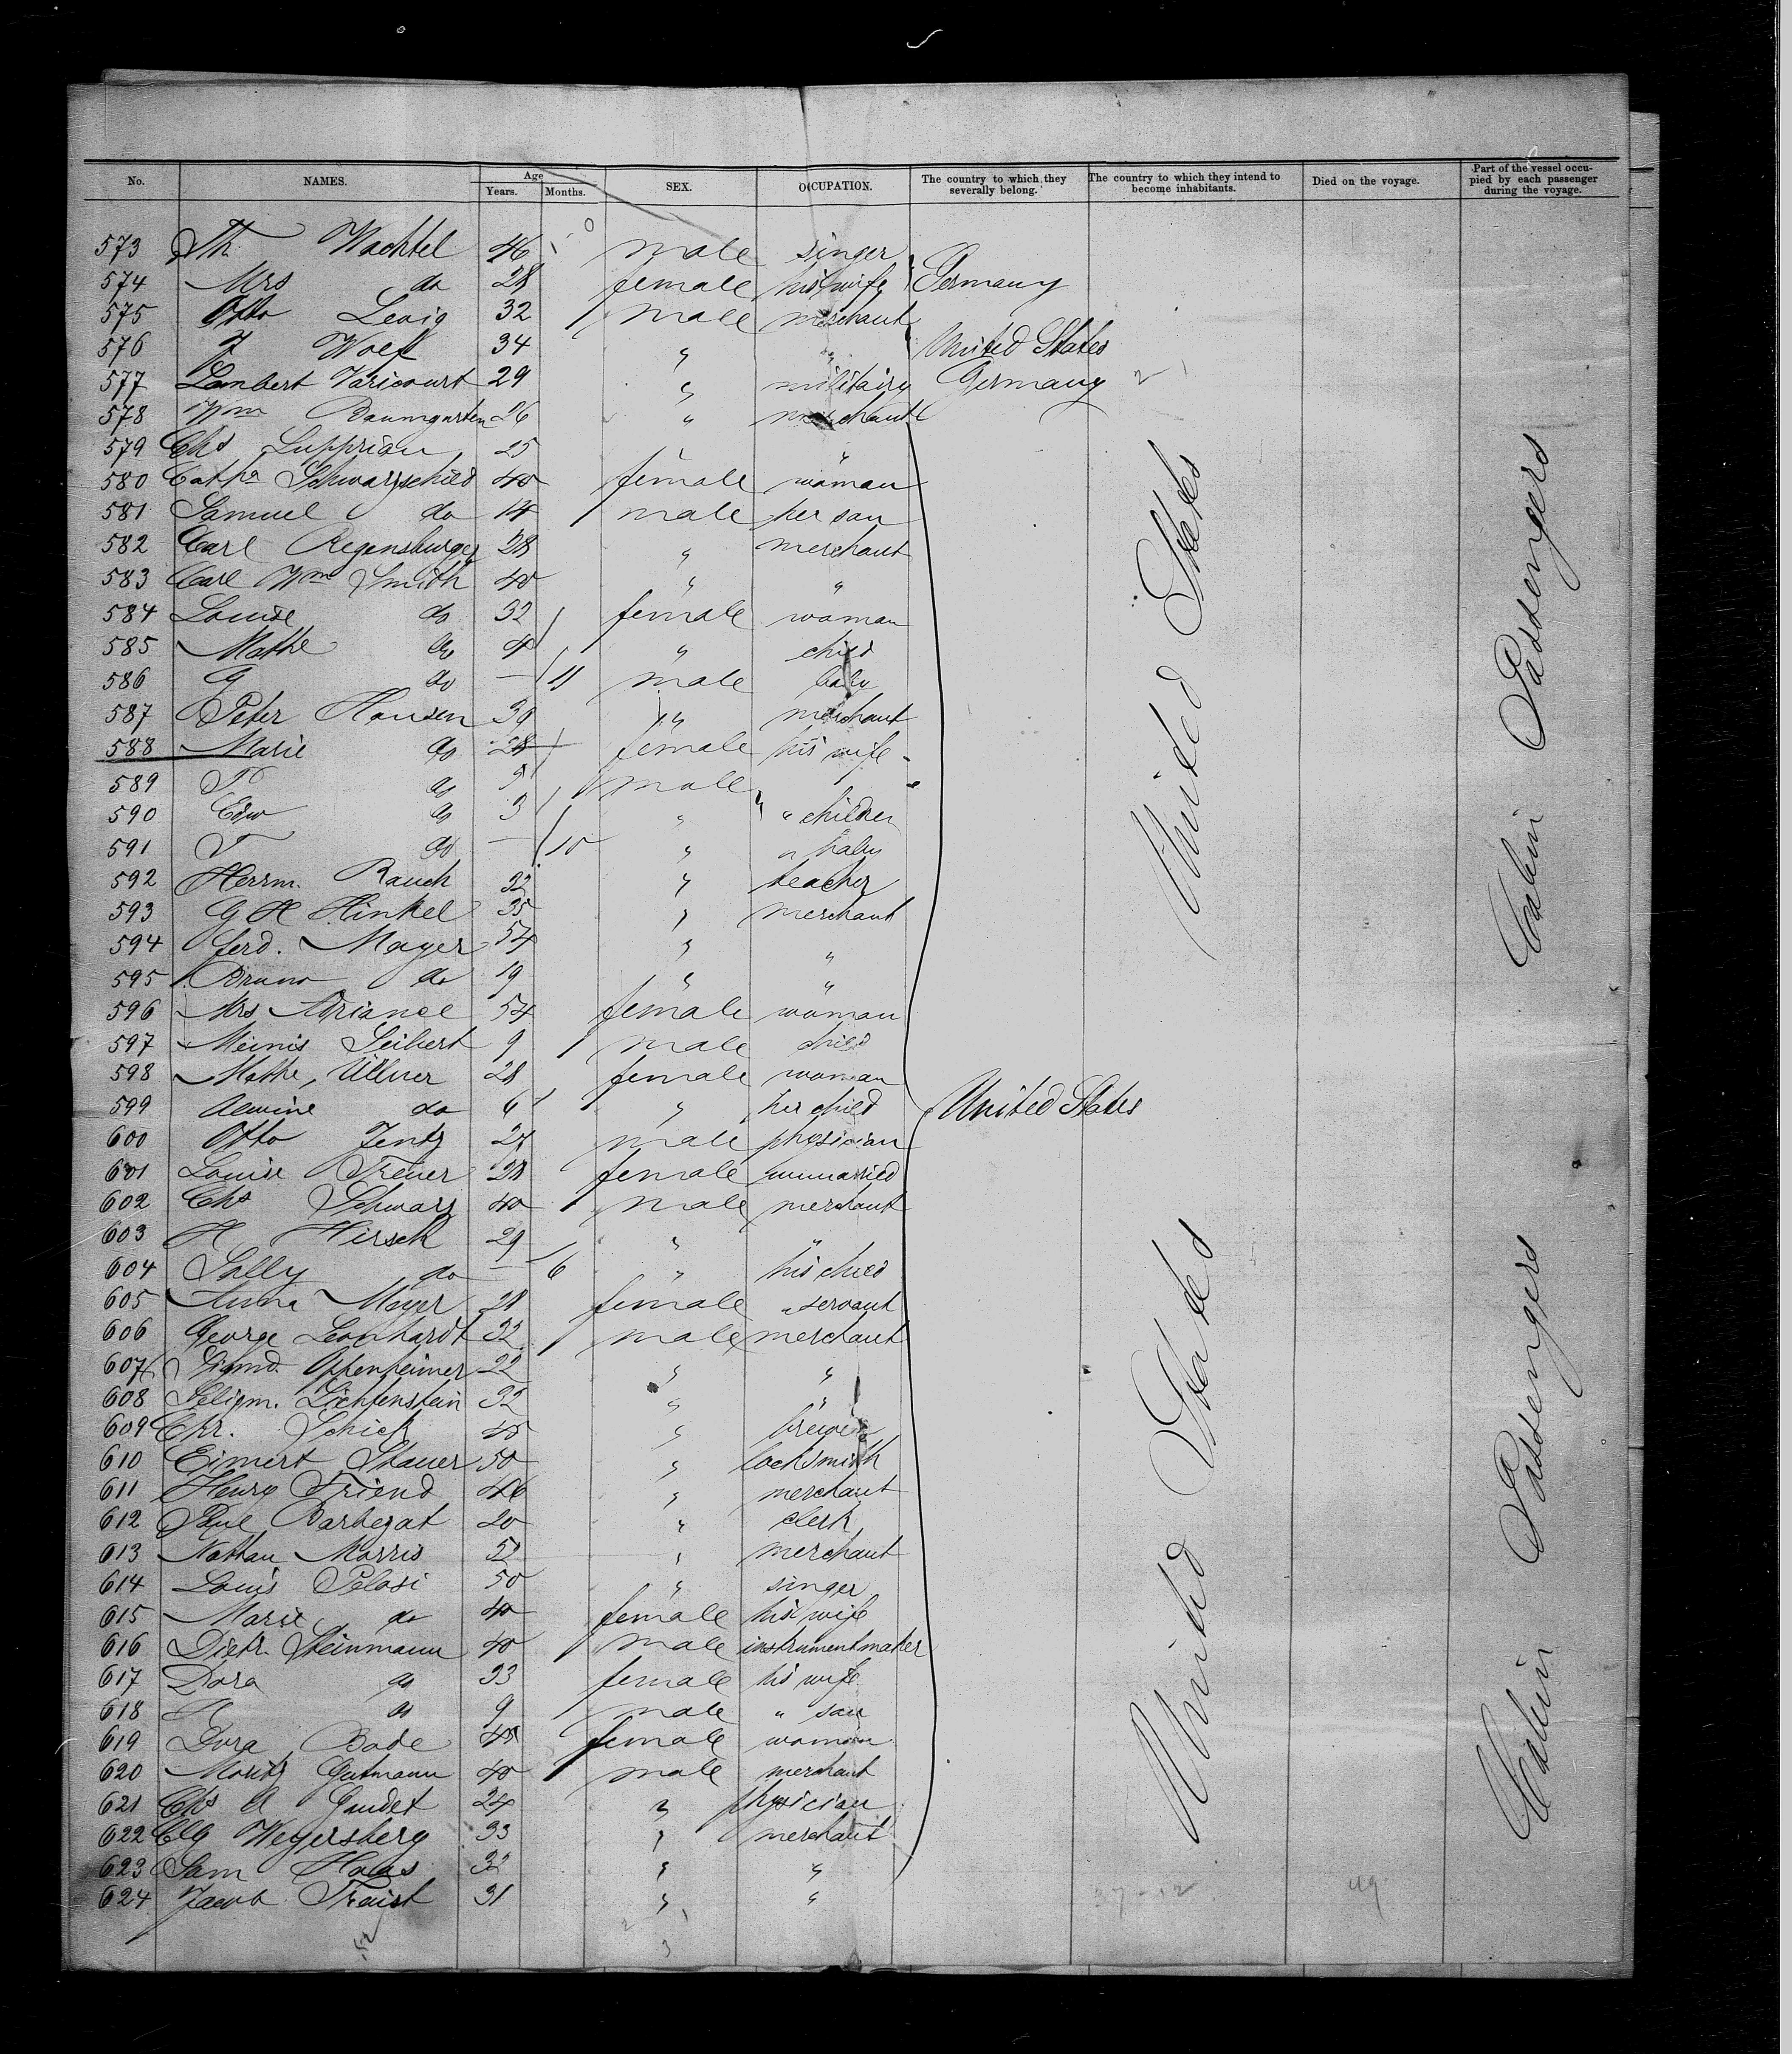 No. NAMES. Age Years. Months. SEX. OCCUPATION. The country to which they severally belong. The country to which they intend to become inhabitants. Died on the voyage. Part of the vessel occupied by each passenger during the voyage.
573 Th. Wachtel 46 male singer
574 Mrs do 28 female his wife Germany
575 Otto Levig 32 male merchant
576 J Wolf 34 " " United States
577 Lambert Varicourt 29 " military Germany
578 Wm Baumgarten 26 " merchant
579 Chs Supprian 25 " "
580 Catha Schwarzschild 40 female woman
581 Samuel do 14 male her son
582 Carl Regensburger 28 " merchant
583 Carl Wm Smith 40 " "
584 Louise do 32 female woman
585 Mathe do 4 " child
586 G do — 11 male baby
587 Peter Hansen 39 " merchant
588 Marie do 28 female his wife
589 do 5 male
590 Edw do 3 " " children
591 do — 10 " " baby
592 Herrm. Rauch 32 " teacher
593 G H Hinkel 35 " merchant
594 Ferd. Mayer 54 " "
595 Bruno do 19 " "
596 Mrs Adriance 54 female woman
597 Meinis Seibert 9 male child
598 Mathe, Ullner 28 female woman
599 Alwine do 6 " her child United States
600 Otto Jentz 27 male physician
601 Louise Treuer 28 female unmarried
602 Chs Schwarz 40 male merchant
603 H Hirsch 29 " "
604 Sally do — 6 " his child
605 Anna Mayer 28 female " servant
606 George Leonhardt 32 male merchant
607 Sigmd. Oppenheimer 22 " "
608 Seligm. Lichtenstein 32 " "
609 Chr. Schick 45 " brewer
610 Eimert Stauer 50 " locksmith
611 Henry Friend 46 " merchant
612 Paul Barbezat 20 " clerk
613 Nathan Morris 52 " merchant
614 Louis Pelosi 50 " singer
615 Marie do 40 female his wife
616 Dietr. Steinmann 40 male instrumentmaker
617 Dora do 33 female his wife
618 H do 9 male " son
619 Dora Bode 45 female woman
620 Moritz Gutmann 40 male merchant
621 Chs A Gaudet 24 " physician
622 Clg Weyersberg 33 " merchant
623 Sam Haas 32 " "
624 Jacob Traist 31 " "
United States
United States
Cabin Passengers
Cabin Passengers
37-12
49
52